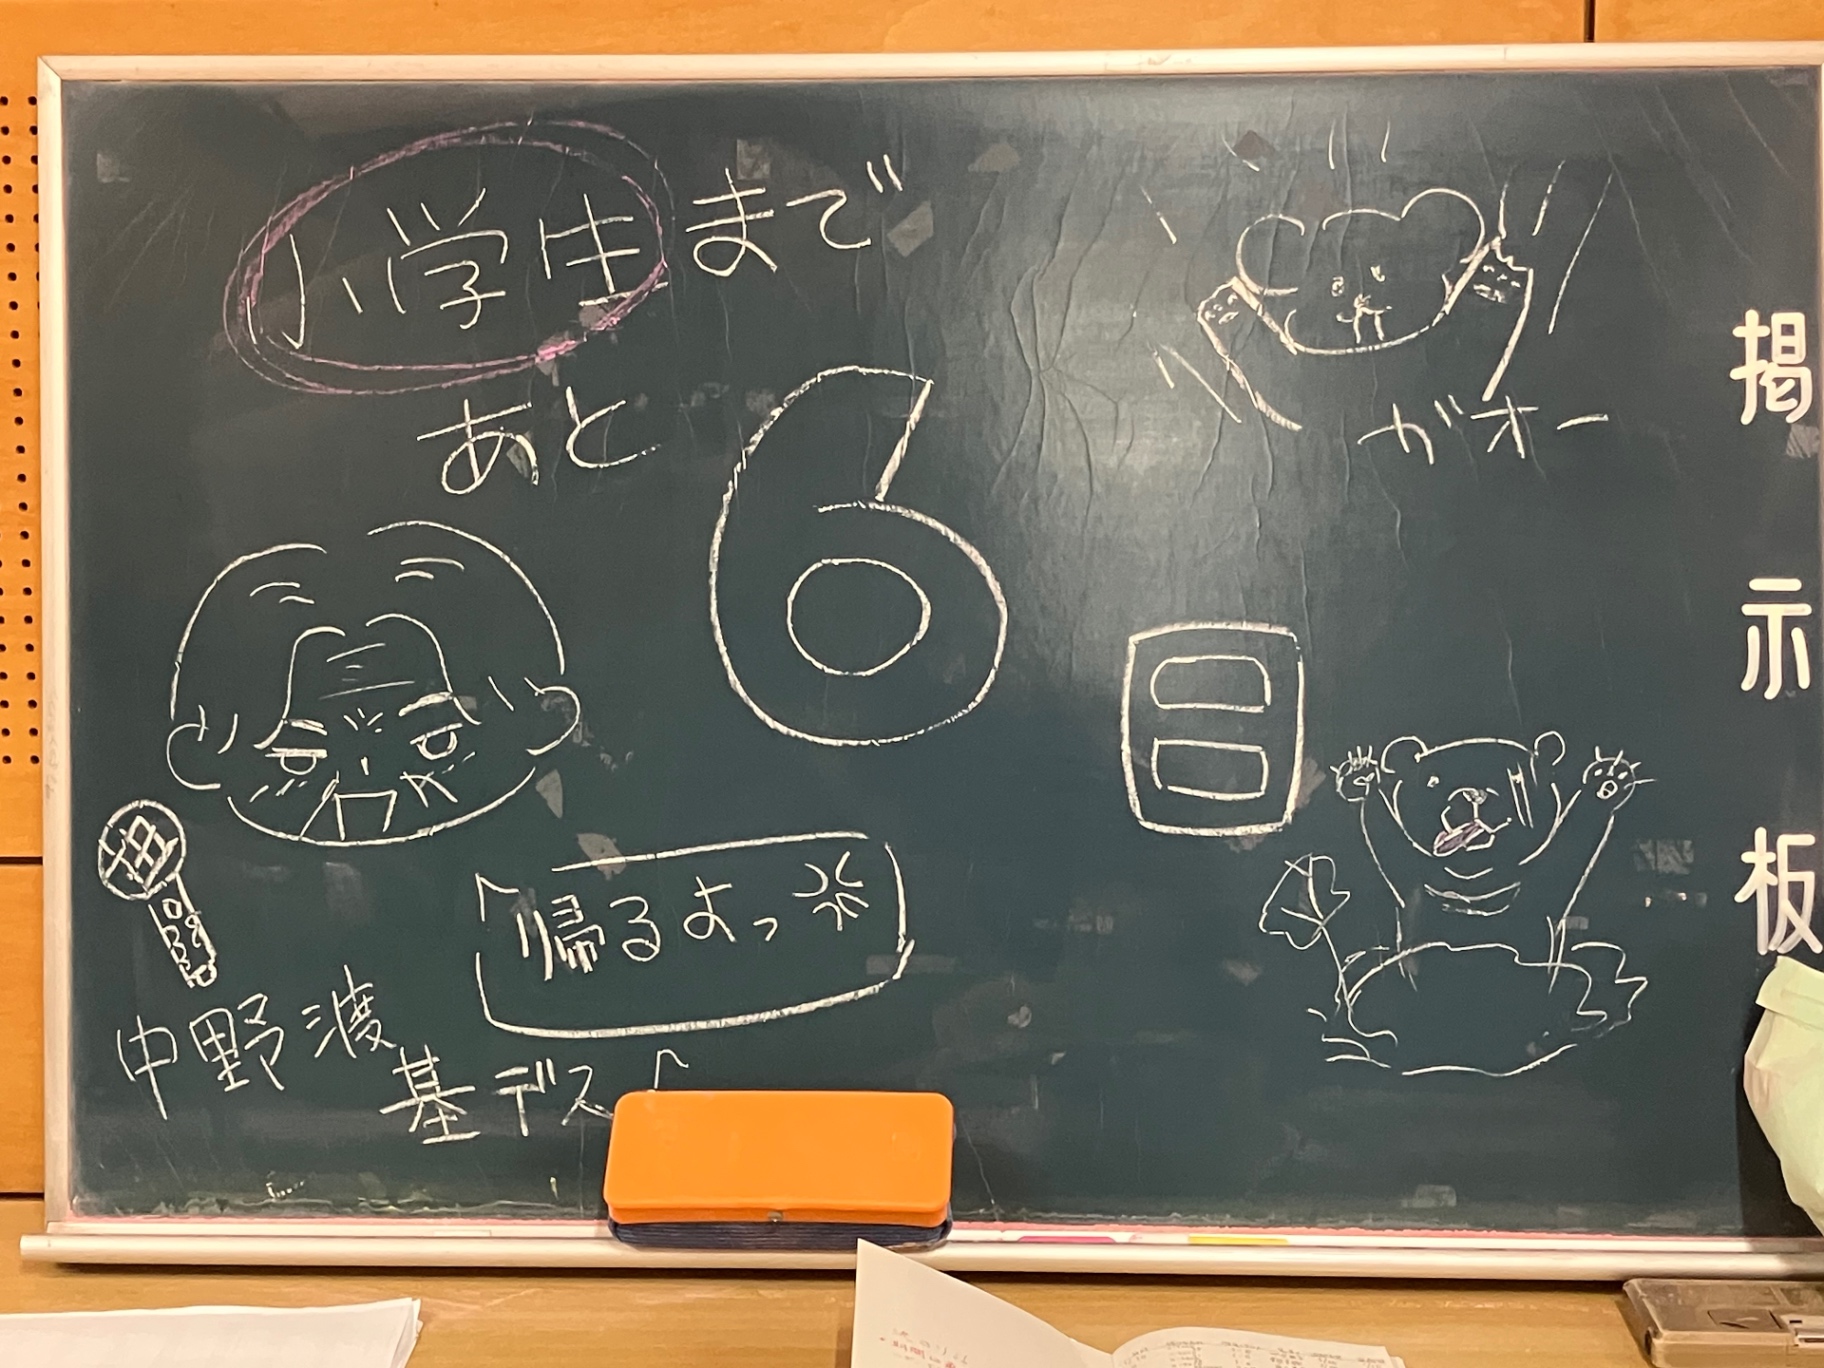 小学生まで
あと
6
日
がオー
帰るよっ
中野渡
基デス
掲示板